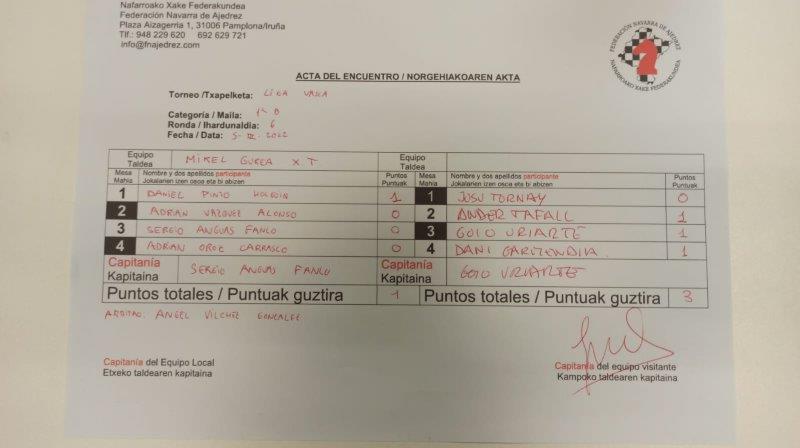 Nafarroako Xake Federakundea
Federación Navarra de Ajedrez
Plaza Aizagerria 1, 31006 Pamplona/Iruña
Tlf.: 948 229 620 692 629 721
info@fnajedrez.com
FEDERACIÓN NAVARRA DE AJEDREZ
NAFARROAKO XAKE FEDERAKUNDEA
ACTA DEL ENCUENTRO / NORGEHIAKOAREN AKTA
Torneo /Txapelketa: LIGA VASCA
Categoría / Maila: 1ª B
Ronda / Ihardunaldia: 6
Fecha / Data: 5-III-2022
Equipo Taldea MIKEL GUREA X.T Equipo Taldea
Mesa Mahia Nombre y dos apellidos participante Jokalarien izen osoa eta bi abizen Puntos Puntuak Mesa Mahia Nombre y dos apellidos participante Jokalarien izen osoa eta bi abizen Puntos Puntuak
1 DANIEL PINTO HOLGUIN 1 1 JOSU TORNAY 0
2 ADRIAN VAZQUEZ ALONSO 0 2 ANDER TAFALL 1
3 SERGIO ANGUAS FANLO 0 3 GOIO URIARTE 1
4 ADRIAN OROZ CARRASCO 0 4 DANI GARMENDIA 1
Capitanía Kapitaina SERGIO ANGUAS FANLO Capitanía Kapitaina GOIO URIARTE
Puntos totales / Puntuak guztira 1 Puntos totales / Puntuak guztira 3
ARBITRO: ANGEL VILCHEZ GONZALEZ
Capitanía del Equipo Local
Etxeko taldearen kapitaina
Capitanía del equipo visitante
Kampoko taldearen kapitaina